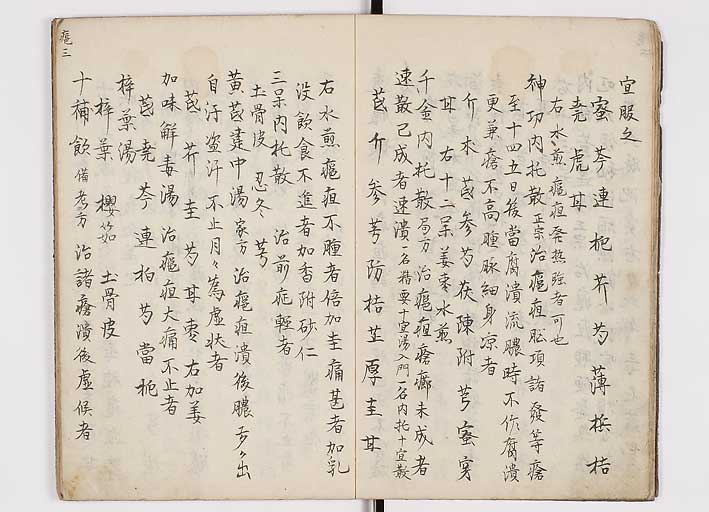 宜服之
蜜芩連梔芥芍薄桜桔
荛虎耳
右水煎癰疽発热強者可也
神功内托散 正宗 治癰疽脳項諸發等瘡
至十四五日後當腐潰流膿時不作腐潰
更兼瘡不高腫脉細身凉者
介朮芪參芍茯陳附芎蜜
耳右十二呆姜枣水煎
千金内托散 局方 治癰疽瘡癤未成者
速散已成者速潰
芪介參芎防桔芷厚圭耳
癰三
右水煎癰疽不腫者倍加圭痛甚者加乳
没飲食不進者加香附砂仁
三呆内托散 治前症輕者
土骨皮 忍冬 芎
黄芪建中湯 家方 治癰疽潰後膿多々出
自汗盗汗不止月々為虚状者
芪芥圭芍耳枣右加姜
加味解毒湯 治癰疽大痛不止者
芪荛芩連柏芍當梔
梓葉湯
梓葉 櫻筎 土骨皮
十補飲 備考方 治諸瘡潰後虚候者